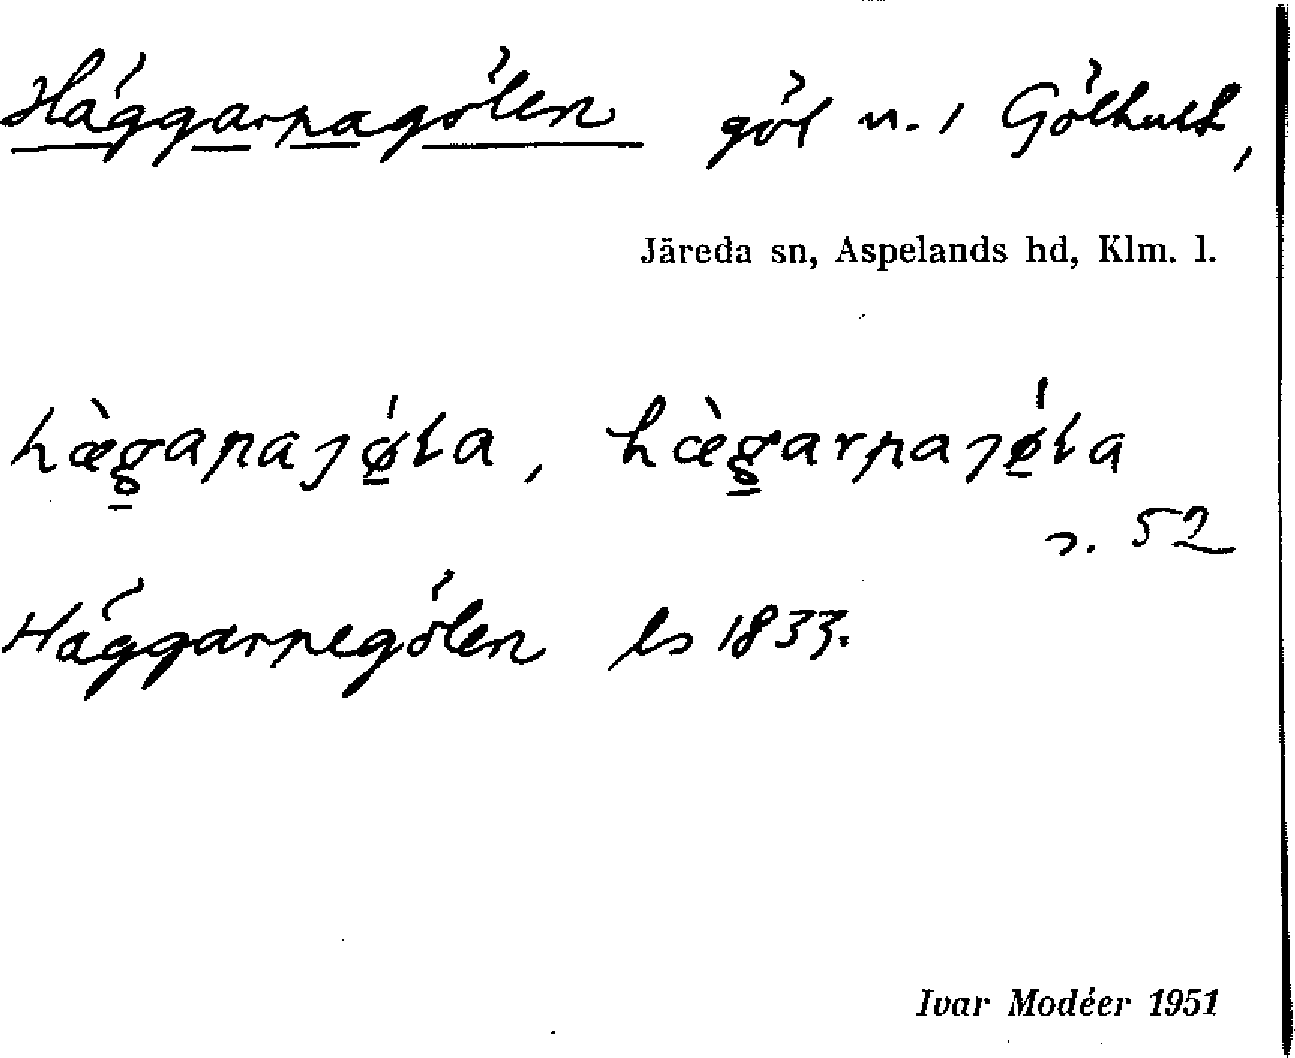 Häggarpagölen göl n. i Gölhult,
Järeda sn, Aspelands hd, Klm. l.
hæ̀gapajǿla, hæ̀garpajǿla
s. 52
Häggarpegölen ls 1833.
Ivar Modéer 1951